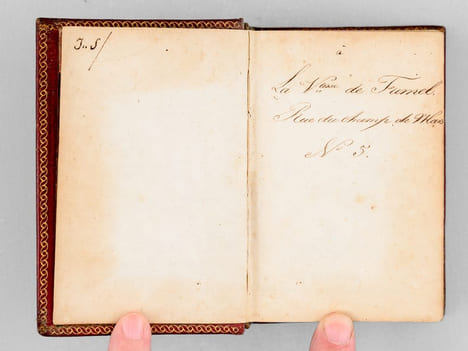 J.. S/
à
La Vtesse de Fumel.
Rue du champ de Mars
Nº 5.